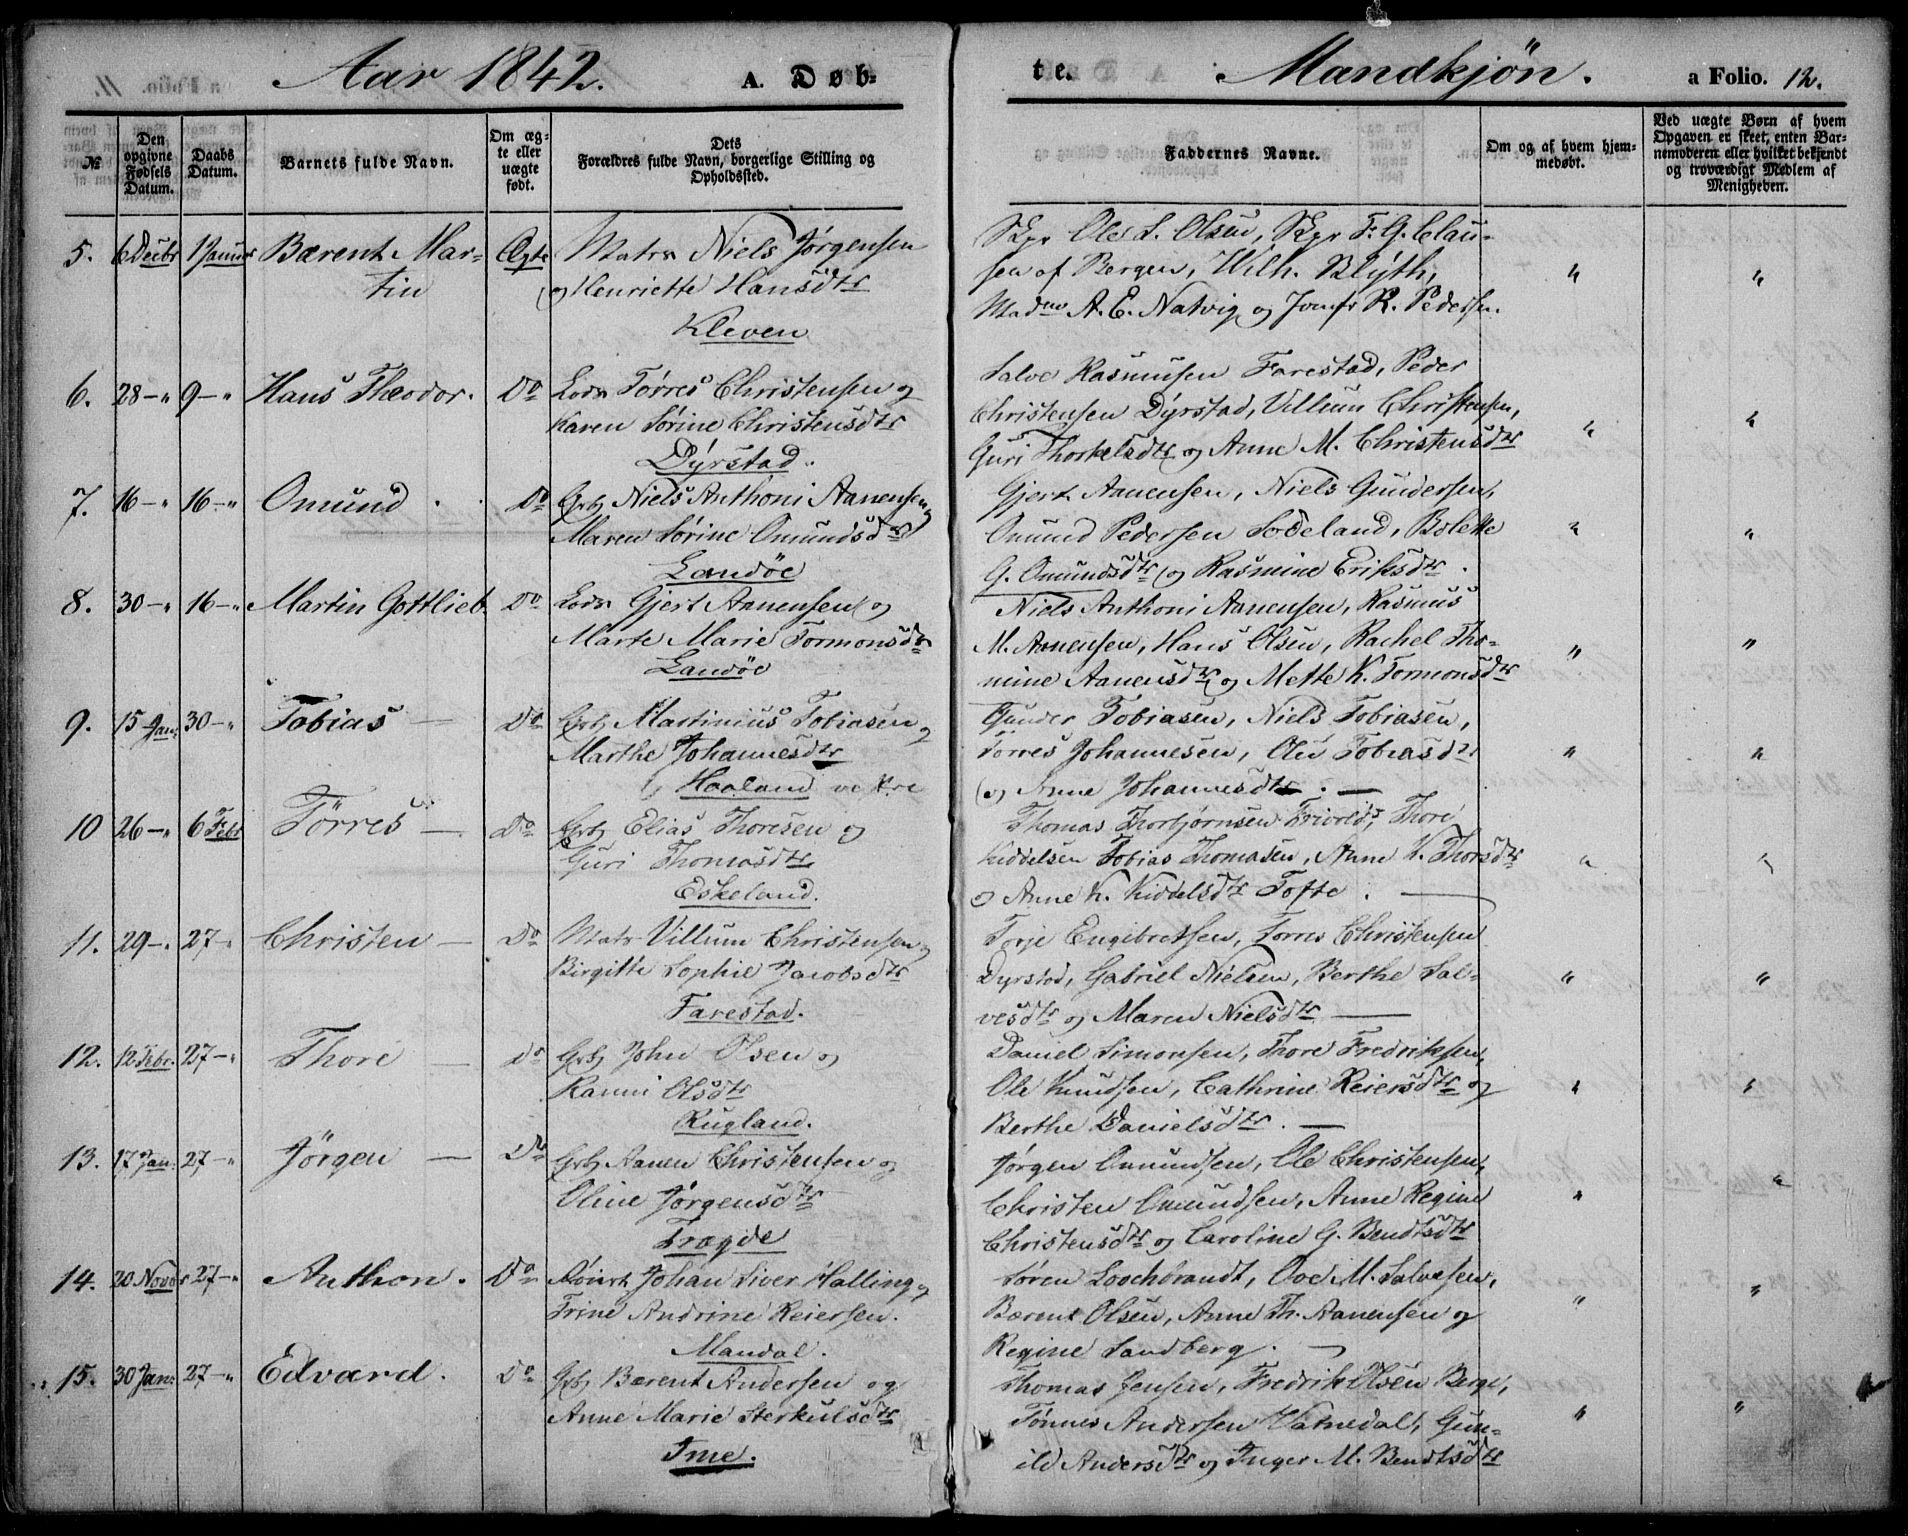 Aar 1842. A. Døb-
te. Mandkjön. a Folio. 12.
№
Den opgivne Fødsels Datum.
Daabs Datum.
Barnets fulde Navn.
Om æg-te eller uægte født.
Dets Forældres fulde Navn, borgerlige Stilling og Opholdssted.
Faddernes Navne.
Om og af hvem hjem-medøbt.
Ved uægte Børn af hvem Opgaven er skeet, enten Bar-nemoderen eller hvilket bekjendt og troværdigt Medlem af Menigheden.
5. 6 Decbr 1 Januar Bærent Mar-
tin
Ægte Matrs Niels Jørgensen
og Henriette Hansdtr
Kleven
Skpr Ole S. Olsen, Skpr F. G. Clau-
sen af Bergen, Wilh. Blÿth,
Madme A. E. Natvig og Jomfr R. Pedersen.
" "
6. 28 -"- 9 -"- Hans Theodor. Do Lods Törres Christensen og
Karen Sörine Christensdtr
Dÿrstad.
Salve Rasmusen Farestad, Peder
Christensen Dÿrstad, Villum Christensen,
Guri Thorkelsdtr og Anne M. Christensdtr
" "
7. 16 -"- 16 -"- Omund. Do Grbg Niels Anthoni Aanensen og
Maren Sörine Omundsdtr
Landöe
Gjert Aanensen, Niels Gundersen,
Omund Pedersen Sodeland, Bolette
G. Omundsdtr og Rasmine Eriksdtr.
" "
8. 30 -"- 16 -"- Martin Gottlieb Do Lods Gjert Aanensen og
Marte Marie Tormonsdtr
Landöe
Niels Anthoni Aanensen, Rasmus
M. Aanensen, Hans Olsen, Rachel Tho-
mine Aanensdtr og Mette K. Tormonsdtr
" "
9. 15 Jan: 30 -"- Tobias — Do Grbg Martinius Tobiasen og
Marthe Johannesdtr
Haaland vestre
Gunder Tobiasen, Niels Tobiasen,
Törres Johannesen, Olu Tobiasdtr
og Anne Johannesdtr. —
" "
10 26 -"- 6 Febr Törres — Do Grbg Elias Thoresen og
Guri Thomasdtr
Eskeland.
Thomas Thorbjørnsen Trivold, Thore
Kiddelsen Tobias Thomasen, Anne K. Thorsdtr
og Anne K. Kiddelsdtr Tofte. —
" "
11. 29 -"- 27 -"- Christen — Do Matr Villum Christensen og
Birgitte Sophie Jacobsdtr
Farestad.
Torje Engibretsen, Torres Christensen
Dyrstad, Gabriel Nielsen, Berthe Sal-
vesdtr og Maren Nielsdtr —
" "
12. 12 Febr. 27 -"- Thore — Do Grbg John Olsen og
Ranni Olsdtr
Rugland.
Daniel Simonsen, Thore Fredriksen,
Ole Knudsen, Cathrine Reiersdtr og
Berthe Danielsdtr. —
" "
13. 17 Jan: 27 -"- Jörgen — Do Grbg Aanen Christensen og
Oline Jørgensdtr
Trægde
Jørgen Omundsen, Ole Christensen,
Christen Omundsen, Anne Regine
Christensdtr og Caroline G. Bendtsdtr
" "
14. 20 Novbr 27 -"- Anthon. Do Johan Siver Malling og
Trine Andrine Reiersen.
Mandal.
Sören Loochbrandt, Ove M. Salvesen,
Bærent Olsen, Anne Th. Aanensen og
Regine Sandberg. —
" "
15. 30 Jan: 27 -"- Edvard. Do Grbg Bærent Andersen og
Anne Marie Sterkulsdtr
Ime.
Thomas Jensen, Fredrik Olsen Berge,
Tönnes Andersen Vatnedal, Gun-
ild Andersdtr og Inger M. Bendtsdtr
" "